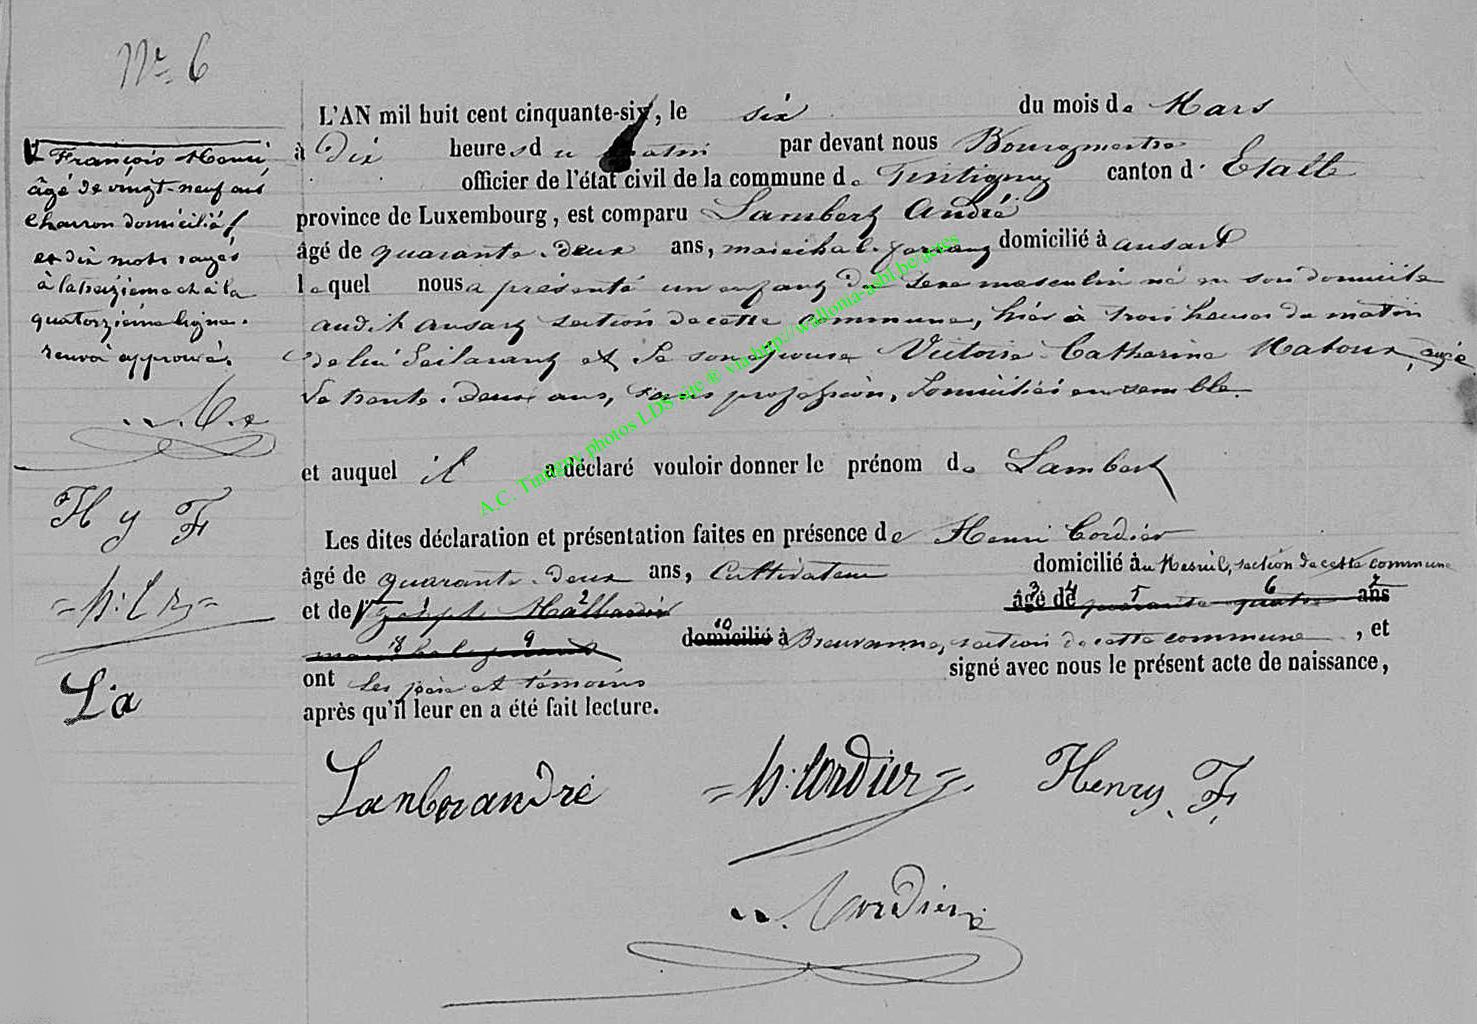 Nr 6
L'AN mil huit cent cinquante-six, le six du mois de Mars
à Dix heures du matin par devant nous Bourgmestre
officier de l'état civil de la commune de Tintigny canton d' Etalle
province de Luxembourg, est comparu Lambert André
âgé de quarante-deux ans, marechal-ferrant domicilié à ansart
lequel nous a présenté un enfant du sexe masculin né en son domicile
audit ansart section de cette commune, hier à trois heures du matin
de lui déclarant et de son épouse Victoire Catherine agée
de trente-deux ans, sans profession, domiciliés ensemble.
et auquel il a déclaré vouloir donner le prénom de Lambert
Les dites déclaration et présentation faites en présence de Henri Cordier
âgé de quarante-deux ans, Cultivateur domicilié au Mesnil, section de cette commune
et de Joseph âgé de quarante quatre ans
marechal ferrant domicilié à Breuvanne, section de cette commune, et
ont les père et témoins signé avec nous le présent acte de naissance,
après qu'il leur en a été fait lecture.
François Henri
âgé de vingt-neuf ans
charron domicilié
et dix mots rayés
à la treizième et à la
quatorzième ligne.
renvoi approuvé.
H y F
L a
Lambor andré
h. Cordier
Henry. F.
Cordier
A.C. Tintigny photos LDS site ® via http://wallonia-asbl.be/actes